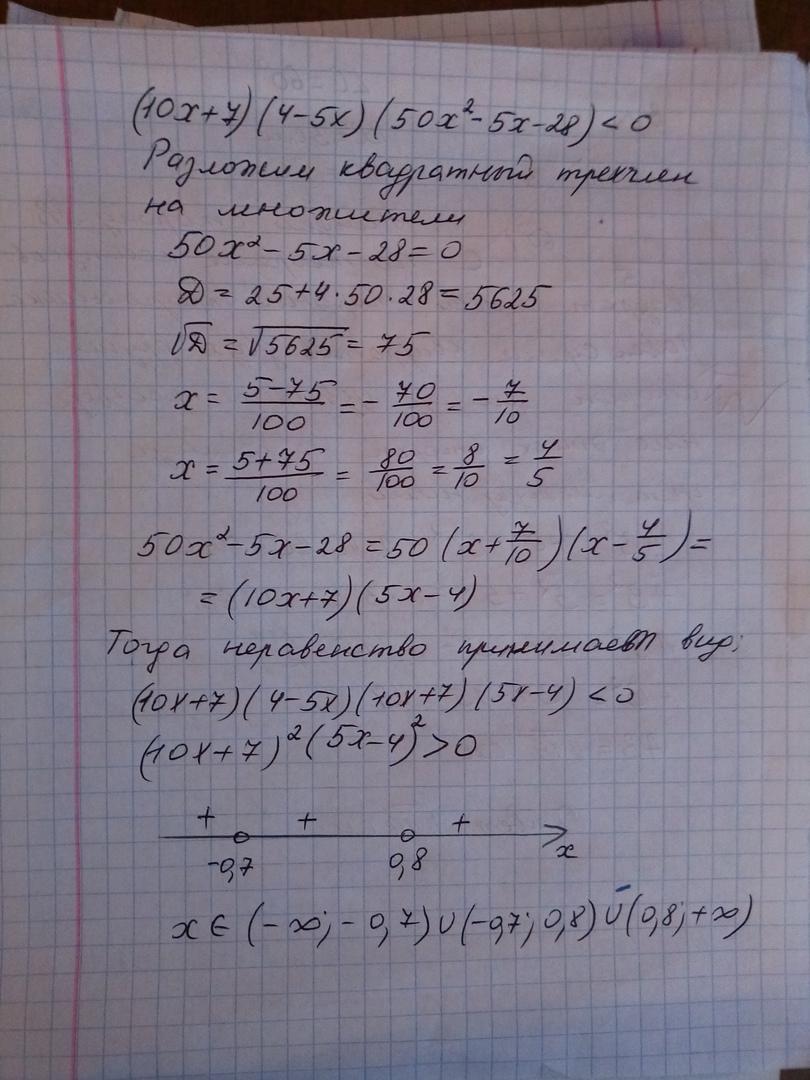 (10x+7)(4-5x)(50x²-5x-28)<0
Разложим квадратный трехчлен
на множители
50x²-5x-28=0
D = 25+4·50·28=5625
√D = √5625 = 75
x = (5-75)/100 = -70/100 = -7/10
x = (5+75)/100 = 80/100 = 8/10 = 4/5
50x²-5x-28 = 50(x+7/10)(x-4/5)=
=(10x+7)(5x-4)
Тогда неравенство принимает вид:
(10x+7)(4-5x)(10x+7)(5x-4)<0
(10x+7)²(5x-4)²>0
+ + +
-0,7 0,8 x
x ∈ (-∞; -0,7)∪(-0,7; 0,8)∪(0,8; +∞)